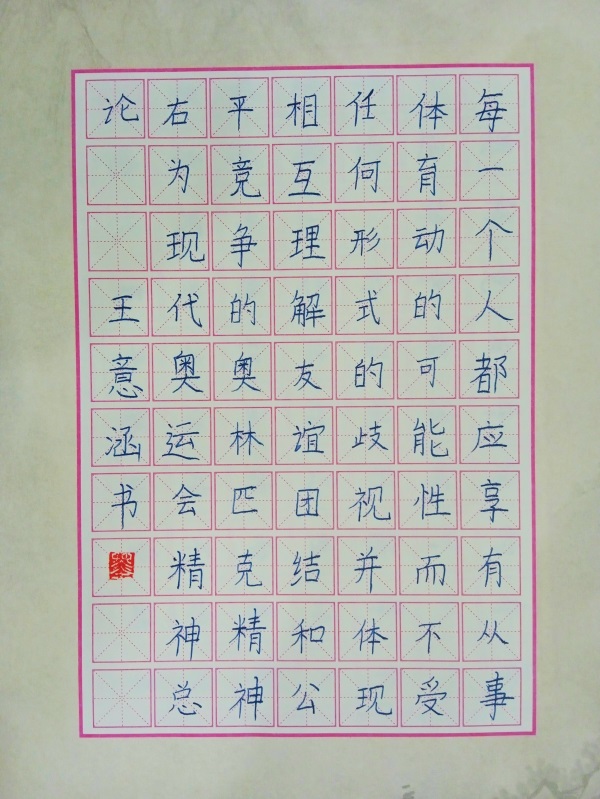 每一个人都应享有从事
体育动的可能性而不受
任何形式的歧视并体现
相互理解友谊团结和公
平竞争的奥林匹克精神
右为现代奥运会精神总
论
王意涵书